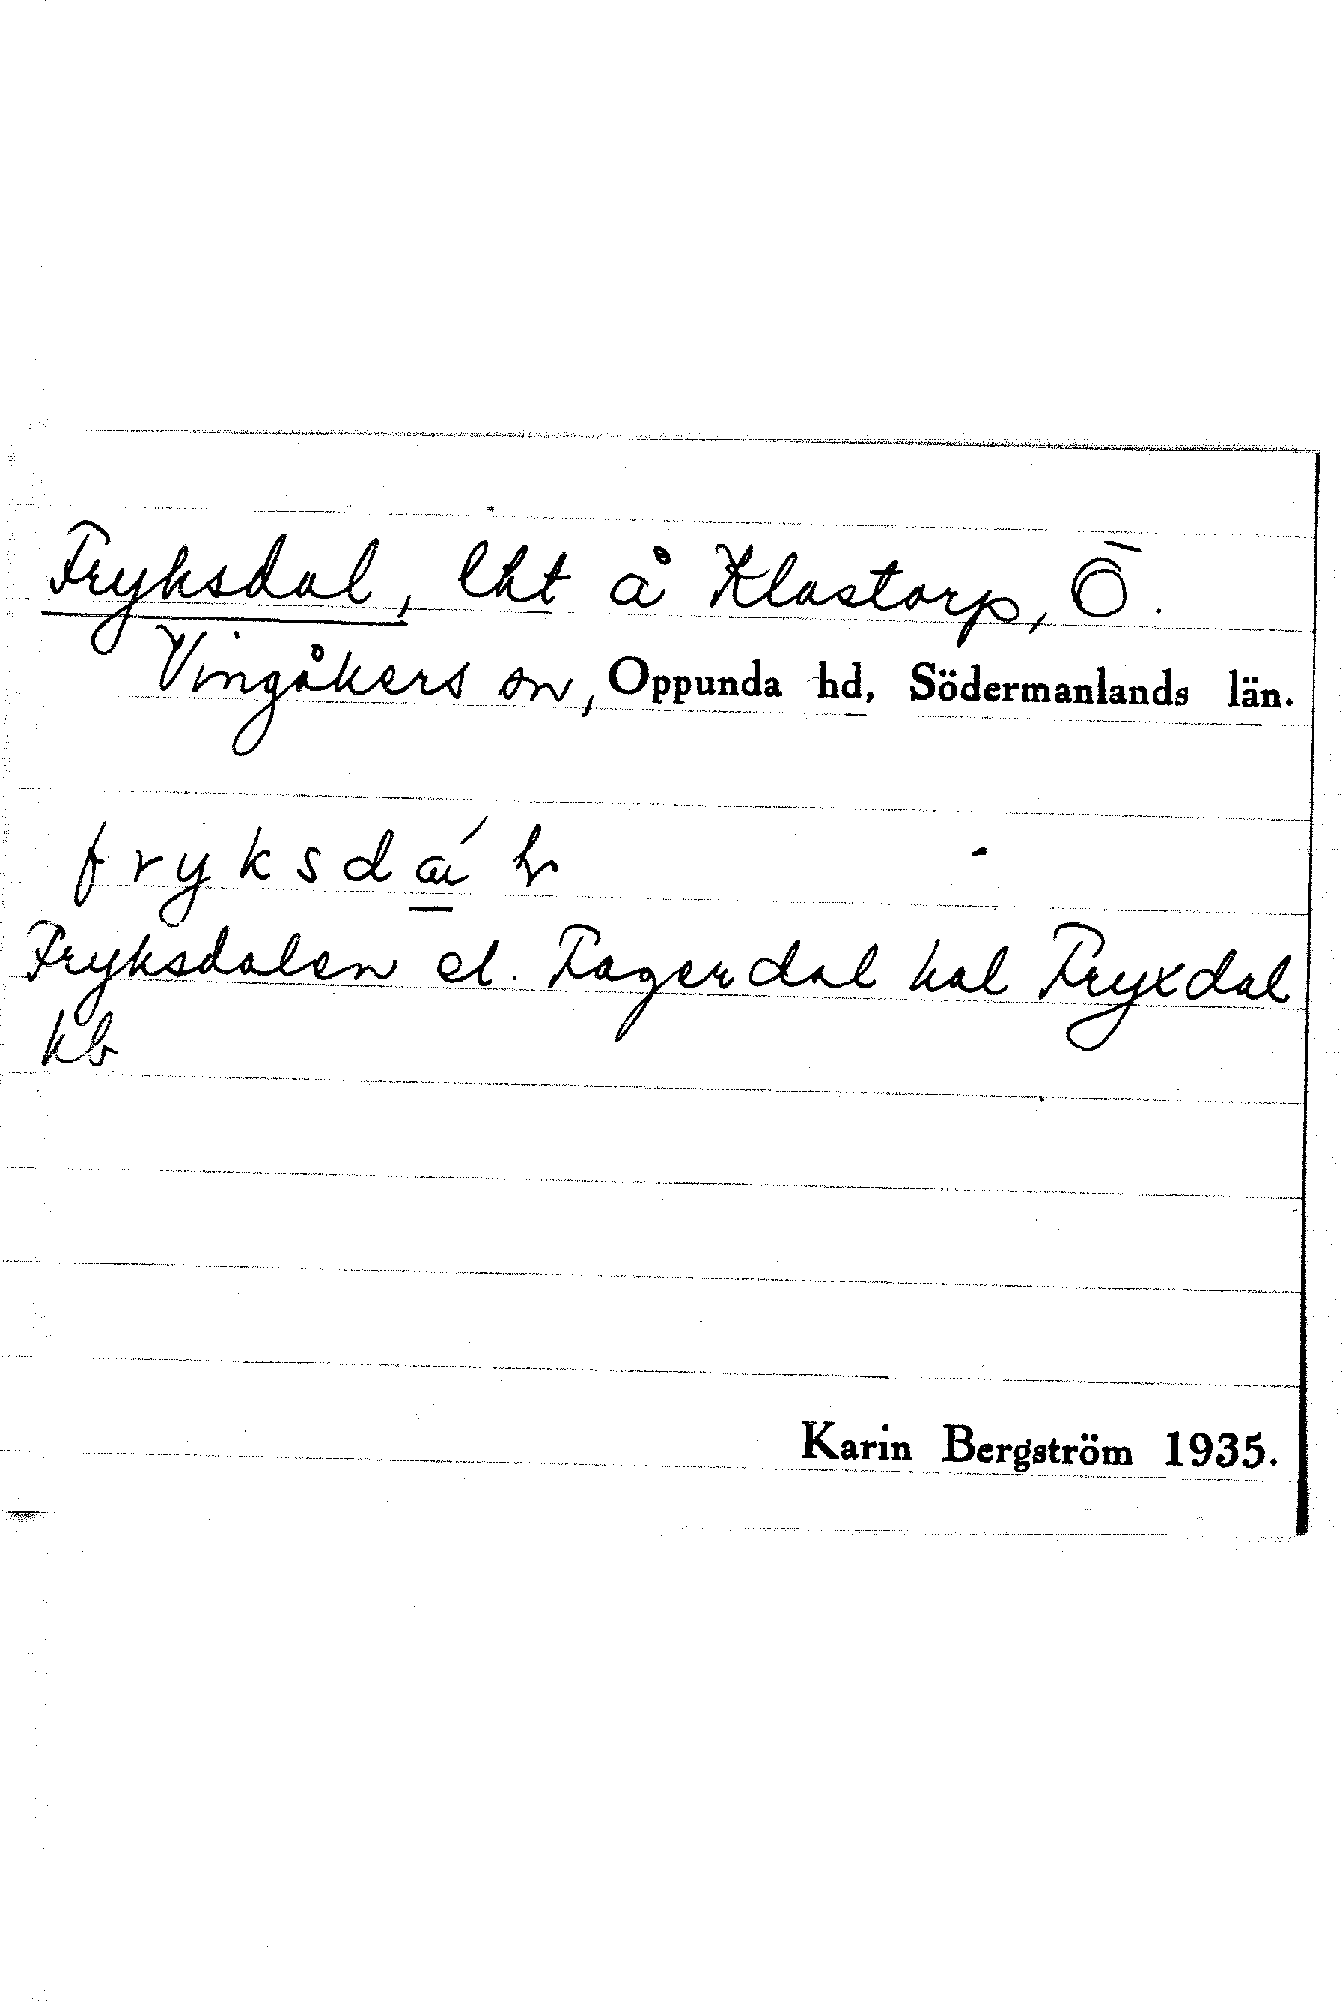 Fryksdal, lht å Klastorp, Ö.
Vingåkers sn, Oppunda hd, Södermanlands län.
fryksdá
Fryksdalen el. Fagerdal hal Fryxdal
kb
Karin Bergström 1935.